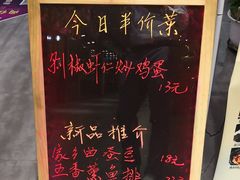 今日半价菜
剁椒虾仁炒鸡蛋
13元
新品推介
家乡曲蚕豆 18元
五香熏鱼排